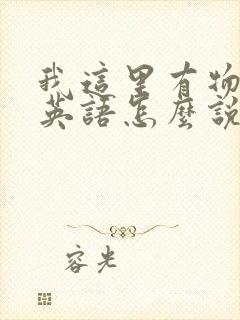 我這里有物
英語怎麼說
容光